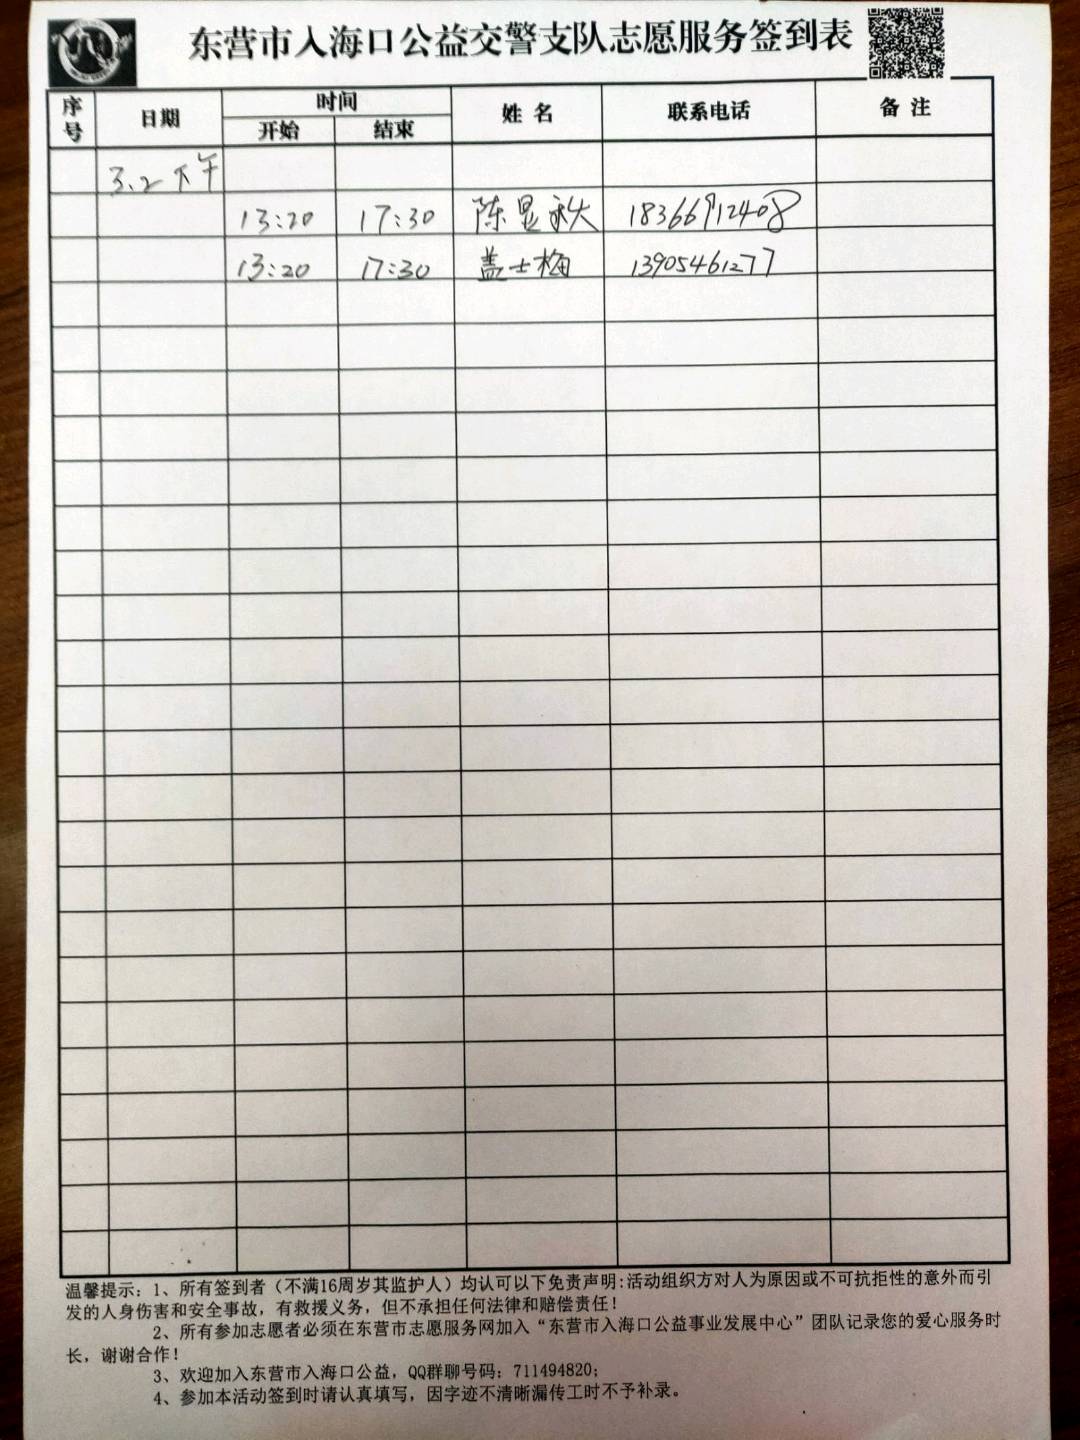 东营市入海口公益交警支队志愿服务签到表
序号 日期 时间 姓 名 联系电话 备 注
开始 结束
3.2 下午
13:20 17:30 陈显秋 18366912408
13:20 17:30 盖士梅 13905461277
温馨提示：1、所有签到者（不满16周岁其监护人）均认可以下免责声明:活动组织方对人为原因或不可抗拒性的意外而引
发的人身伤害和安全事故，有救援义务，但不承担任何法律和赔偿责任！
2、所有参加志愿者必须在东营市志愿服务网加入“东营市入海口公益事业发展中心”团队记录您的爱心服务时
长，谢谢合作！
3、欢迎加入东营市入海口公益，QQ群聊号码：711494820；
4、参加本活动签到时请认真填写，因字迹不清晰漏传工时不予补录。